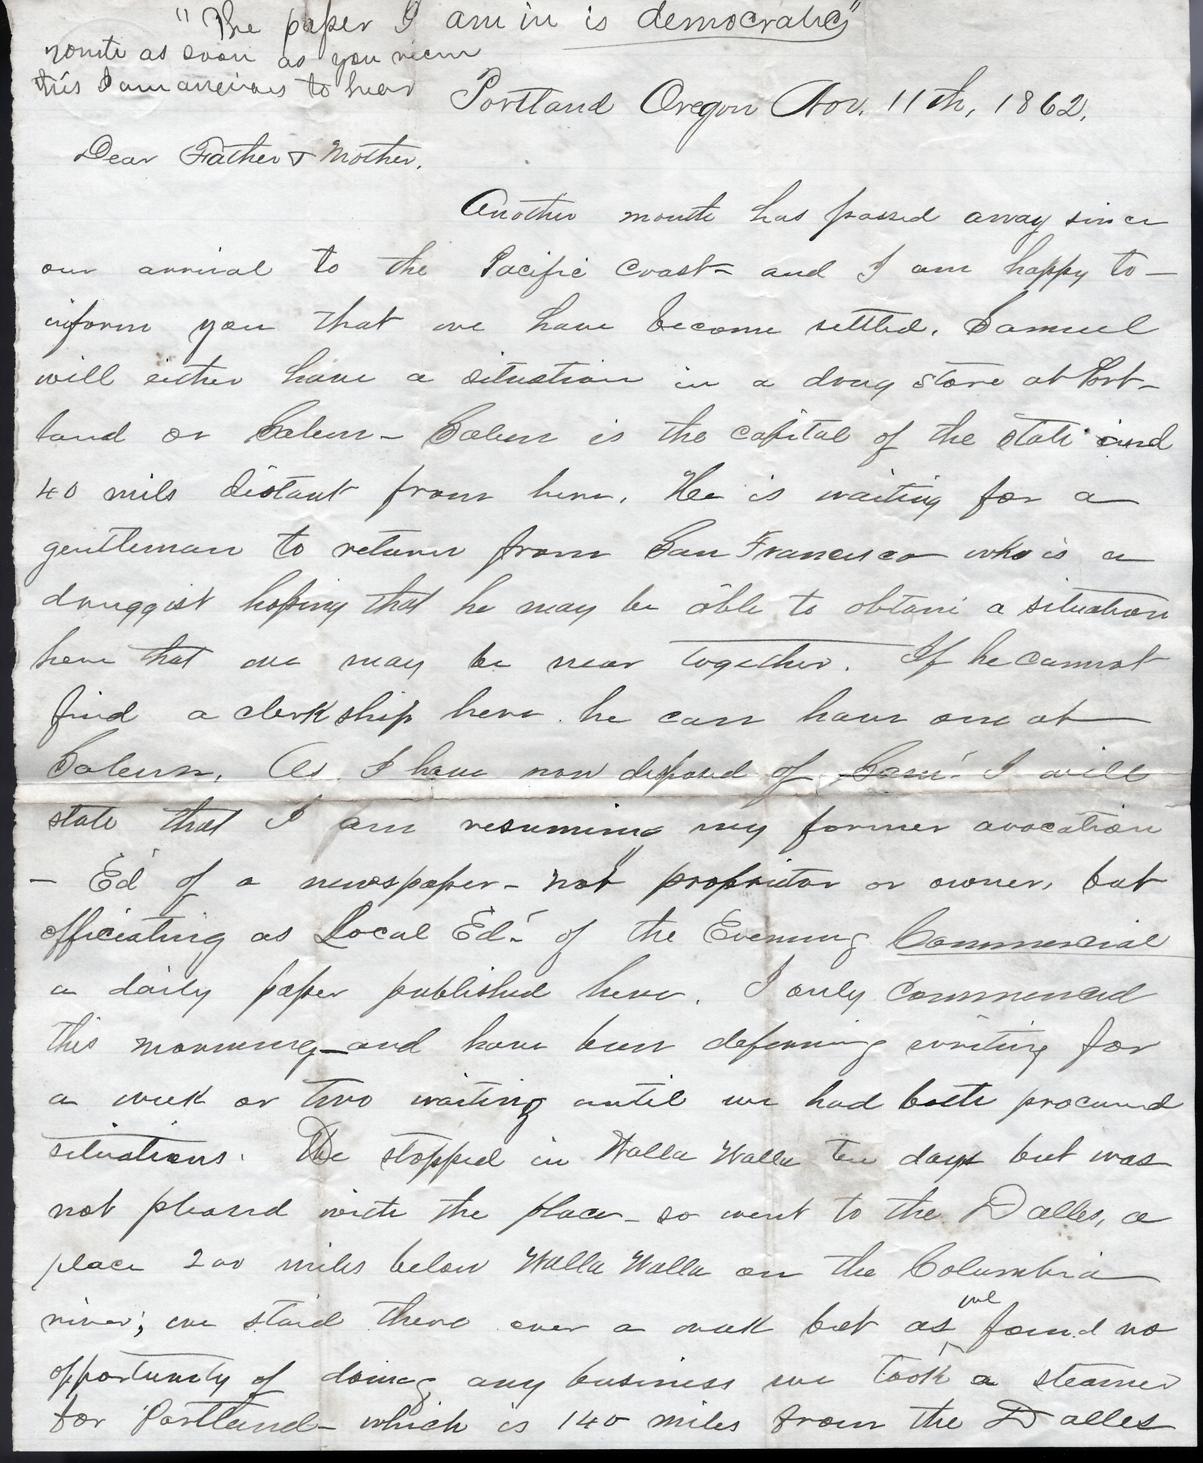 "The paper I am in is democratic"
write as soon as you receive
this I am anxious to hear
Portland Oregon Nov. 11th, 1862.
Dear Father & Mother.
Another month has passed away since
our arrival to the Pacific Coast - and I am happy to -
inform you that we have become settled. Samuel
will either have a situation in a drug store at Port-
land or Salem - Salem is the capital of the state and
40 mils distant from here. He is waiting for a
gentleman to return from San Francisco who is a
druggist hoping that he may be able to obtain a situation
here that we may be near together. If he cannot
find a clerkship here he can have one at
Salem. As I have now disposed of Sam'. I will
state that I am resuming my former avocation
- Ed' of a newspaper - "not" proprietor or owner, but
officiating as Local Ed'. of the Evening Commercial
a daily paper published here. I only commenced
this morning - and have been deferring writing for
a week or two waiting until we had both procured
situations. We stopped in Walla Walla ten days but was
not pleased with the place - so went to the Dalles, a
place 200 miles below Walla Walla on the Columbia
river; we staid there over a week but as we found no
opportunity of doing any business we took a steamer
for Portland - which is 140 miles from the Dalles